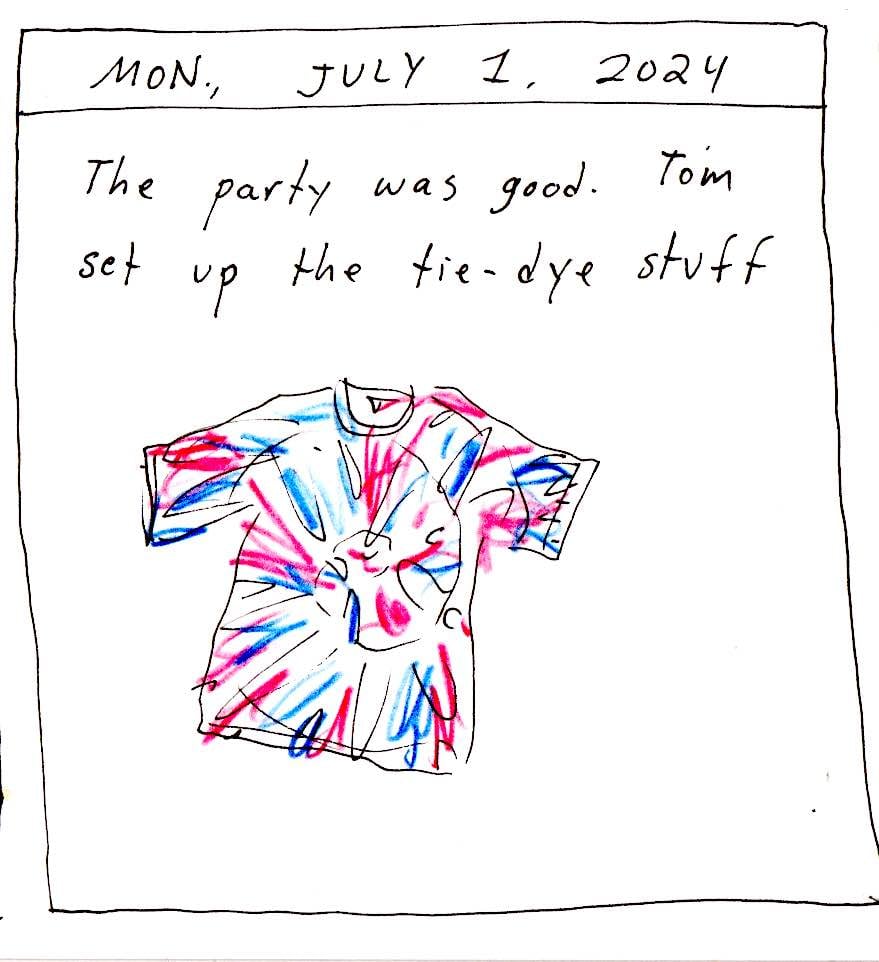 MON., JULY 1, 2024
The party was good. Tom
set up the tie-dye stuff